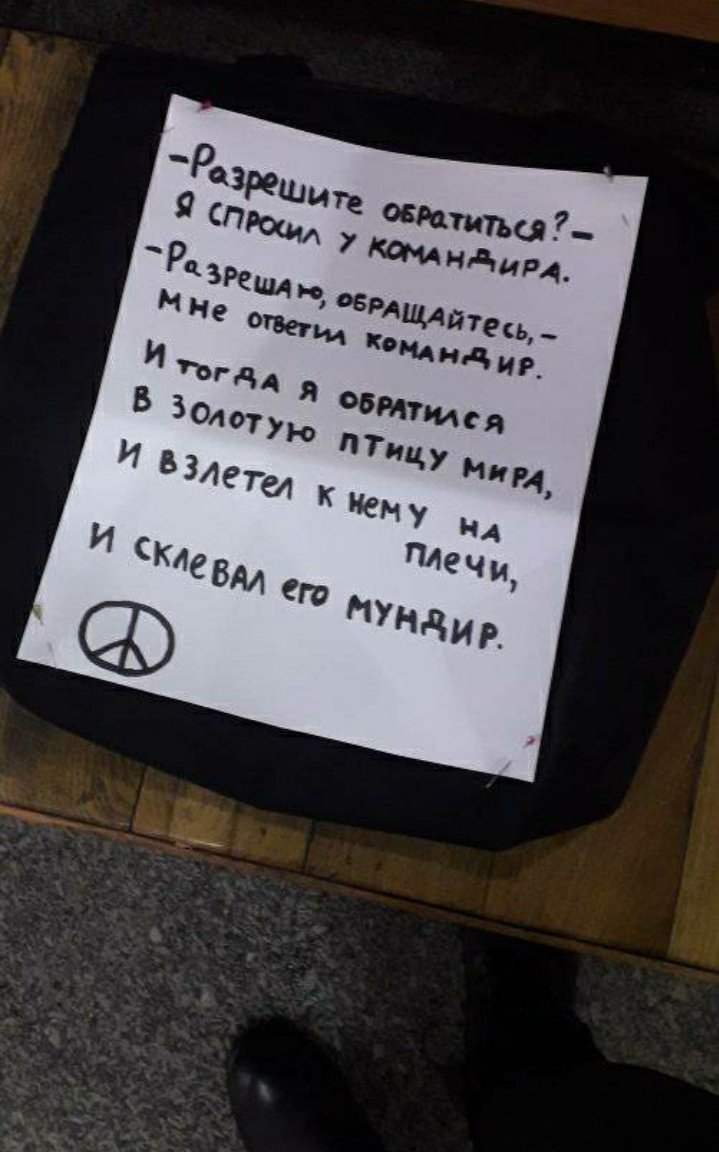 -Разрешите обратиться?-
Я спросил у командира.
-Разрешаю, обращайтесь,-
мне ответил командир.
И тогда я обратился
в золотую птицу мира,
и взлетел к нему на
плечи,
и склевал его мундир.